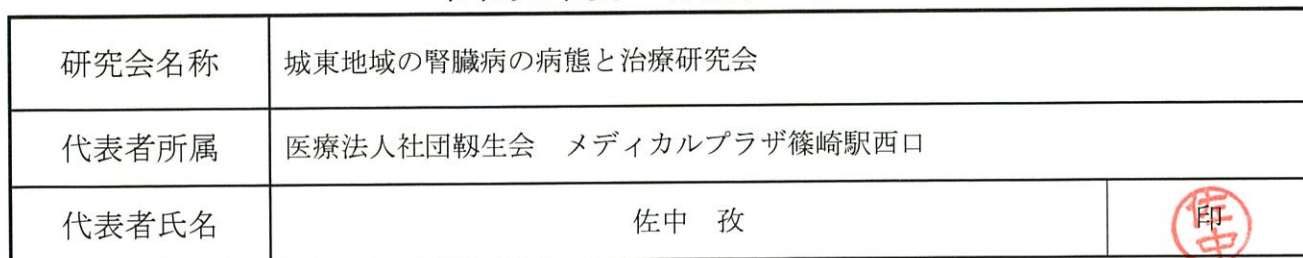 研究会名称 城東地域の腎臓病の病態と治療研究会
代表者所属 医療法人社団靱生会　メディカルプラザ篠崎駅西口
代表者氏名 佐中　孜 印 佐中